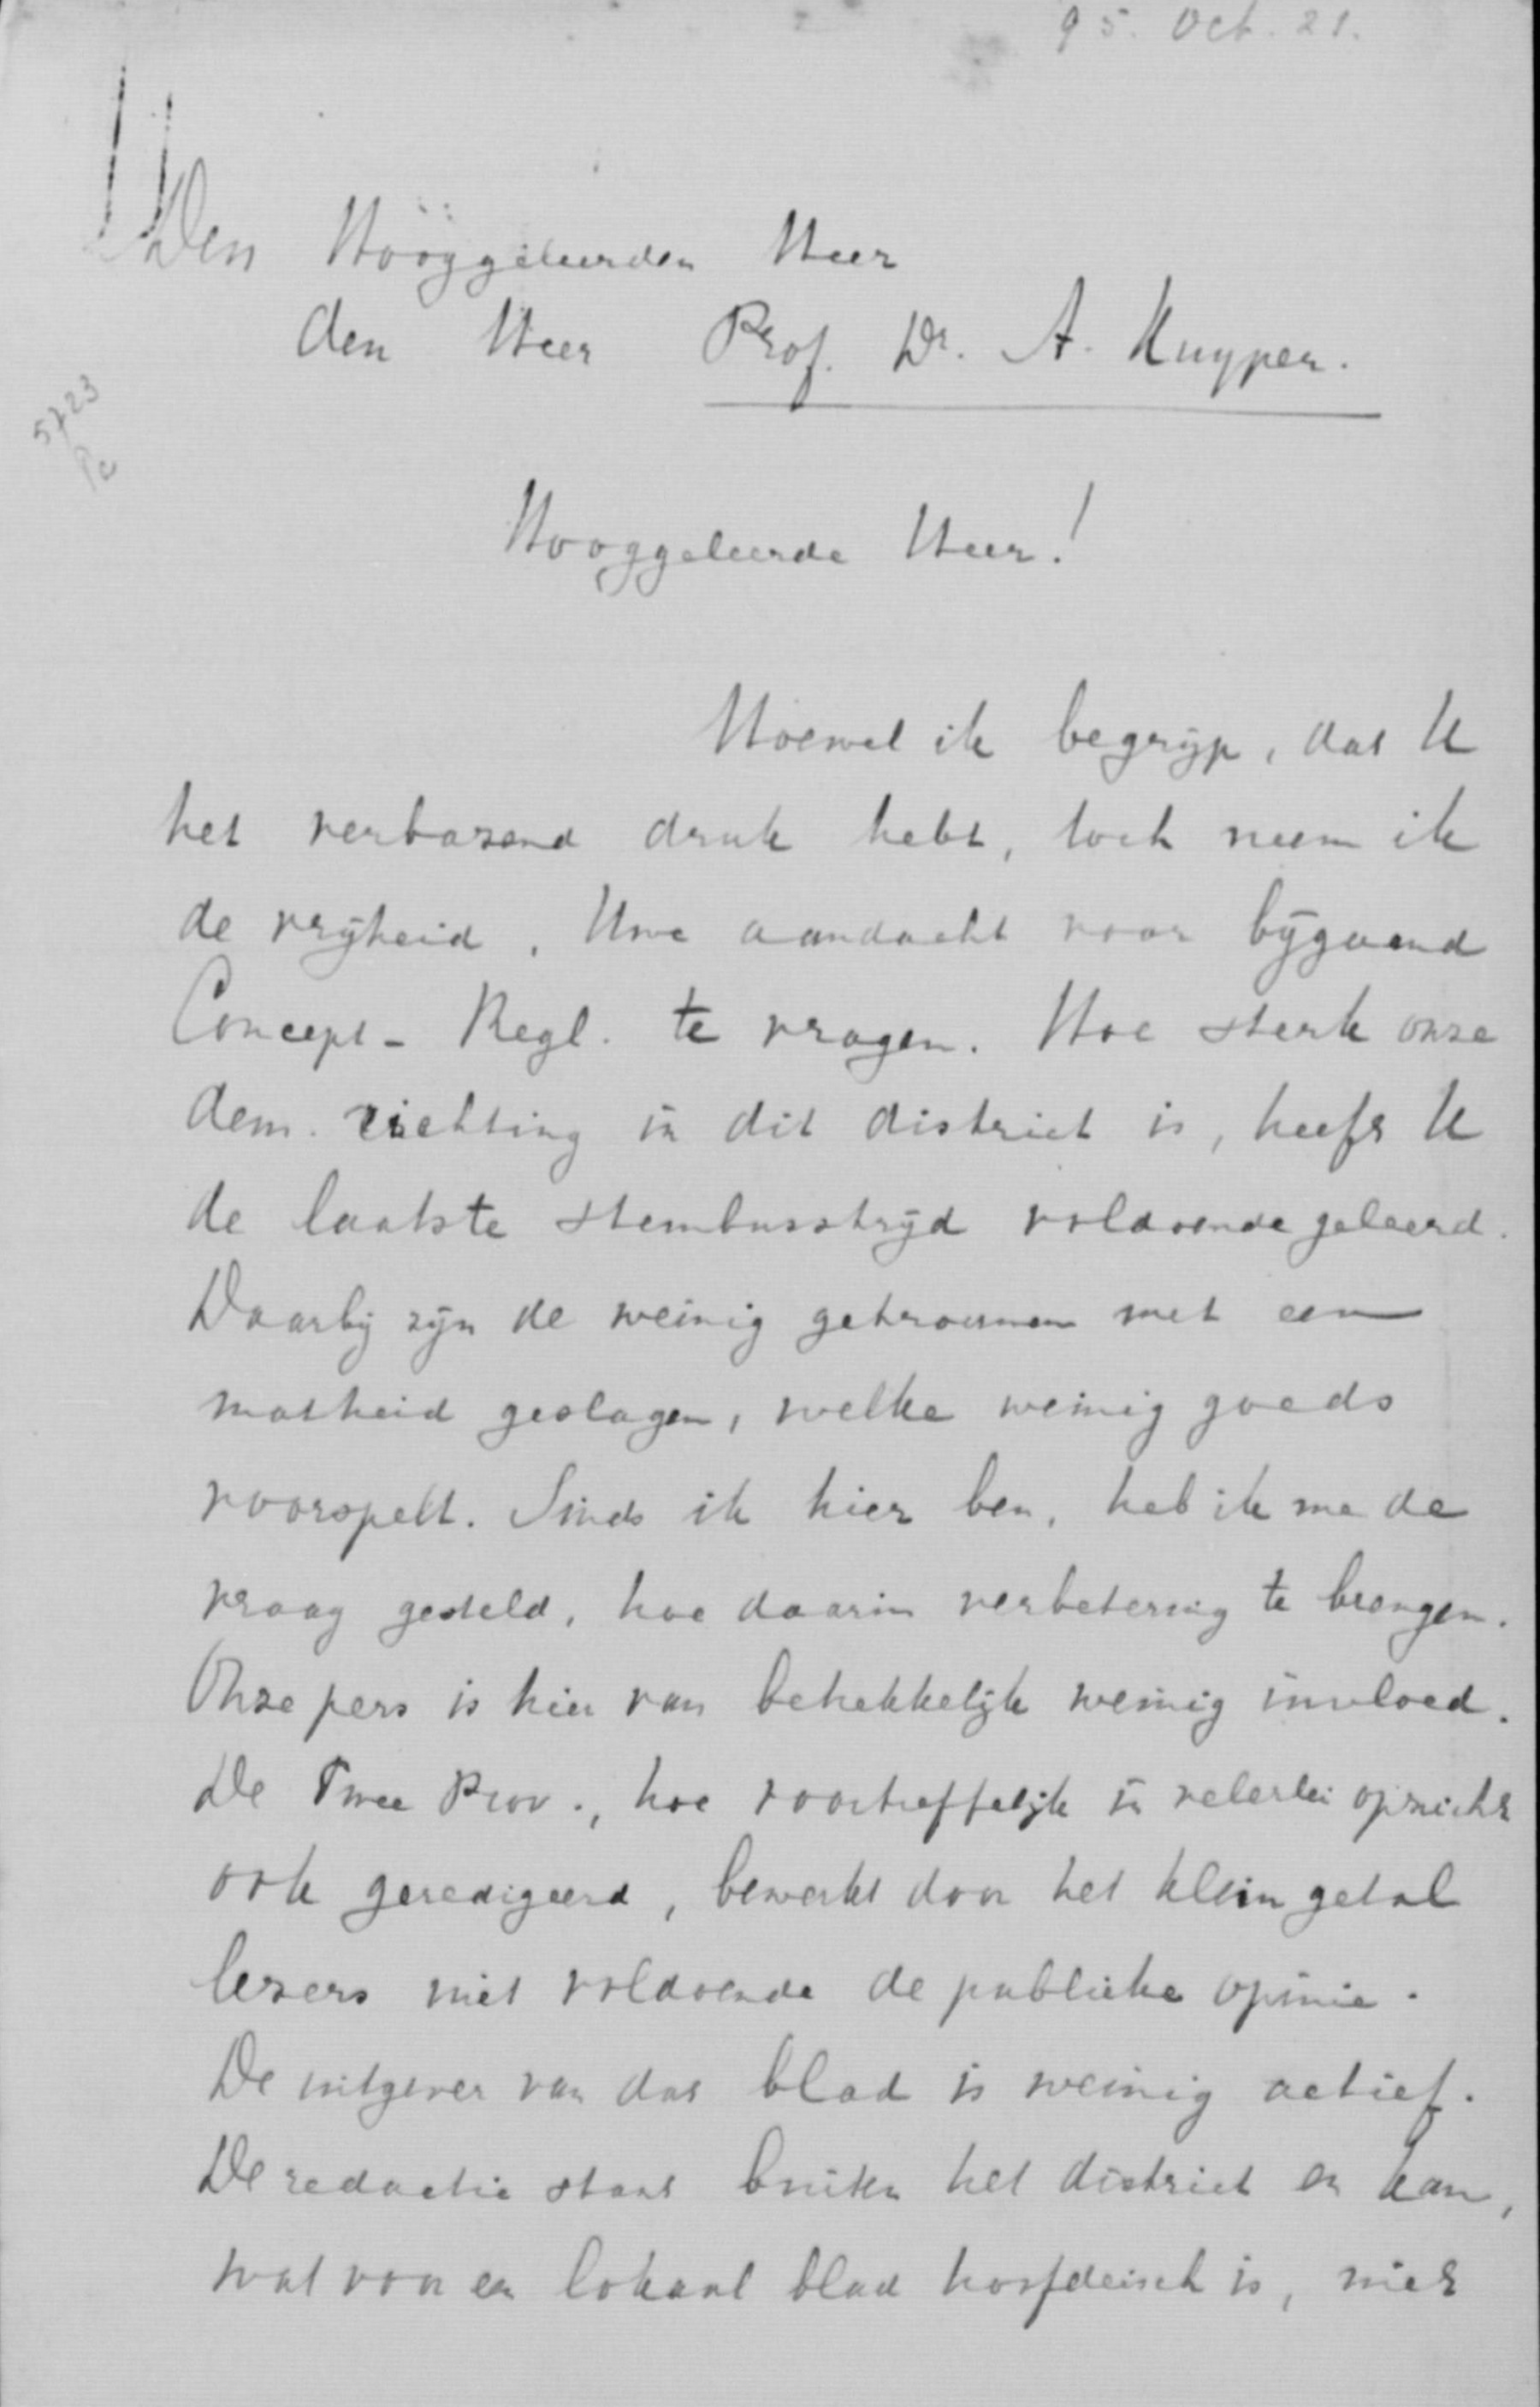 95. Oct. 21.
Den Hooggeleerden Heer
den Heer Prof. Dr. A. Kuyper.
5723
Hooggeleerde Heer!
Hoewel ik begrijp, dat U
het verbazend druk hebt, toch neem ik
de vrijheid, Uwe aandacht voor bijgaand
Concept-Regl. te vragen. Hoe sterk onze
dem. richting in dit district is, heeft U
de laatste stembusstrijd voldoende geleerd.
Daarbij zijn de weinig getrouwen met een
matheid geslagen, welke weinig goeds
voorspelt. Sinds ik hier ben, heb ik me de
vraag gesteld, hoe daarin verbetering te brengen.
Onze pers is hier van betrekkelijk weinig invloed.
De Twee Prov., hoe voortreffelijk in velerlei opzicht
ook geredigeerd, bewerkt door het klein getal
lezers niet voldoende de publieke opinie.
De uitgever van dat blad is weinig actief.
De redactie staat buiten het district en kan,
wat voor en lokaal blad hoofdeisch is, niet